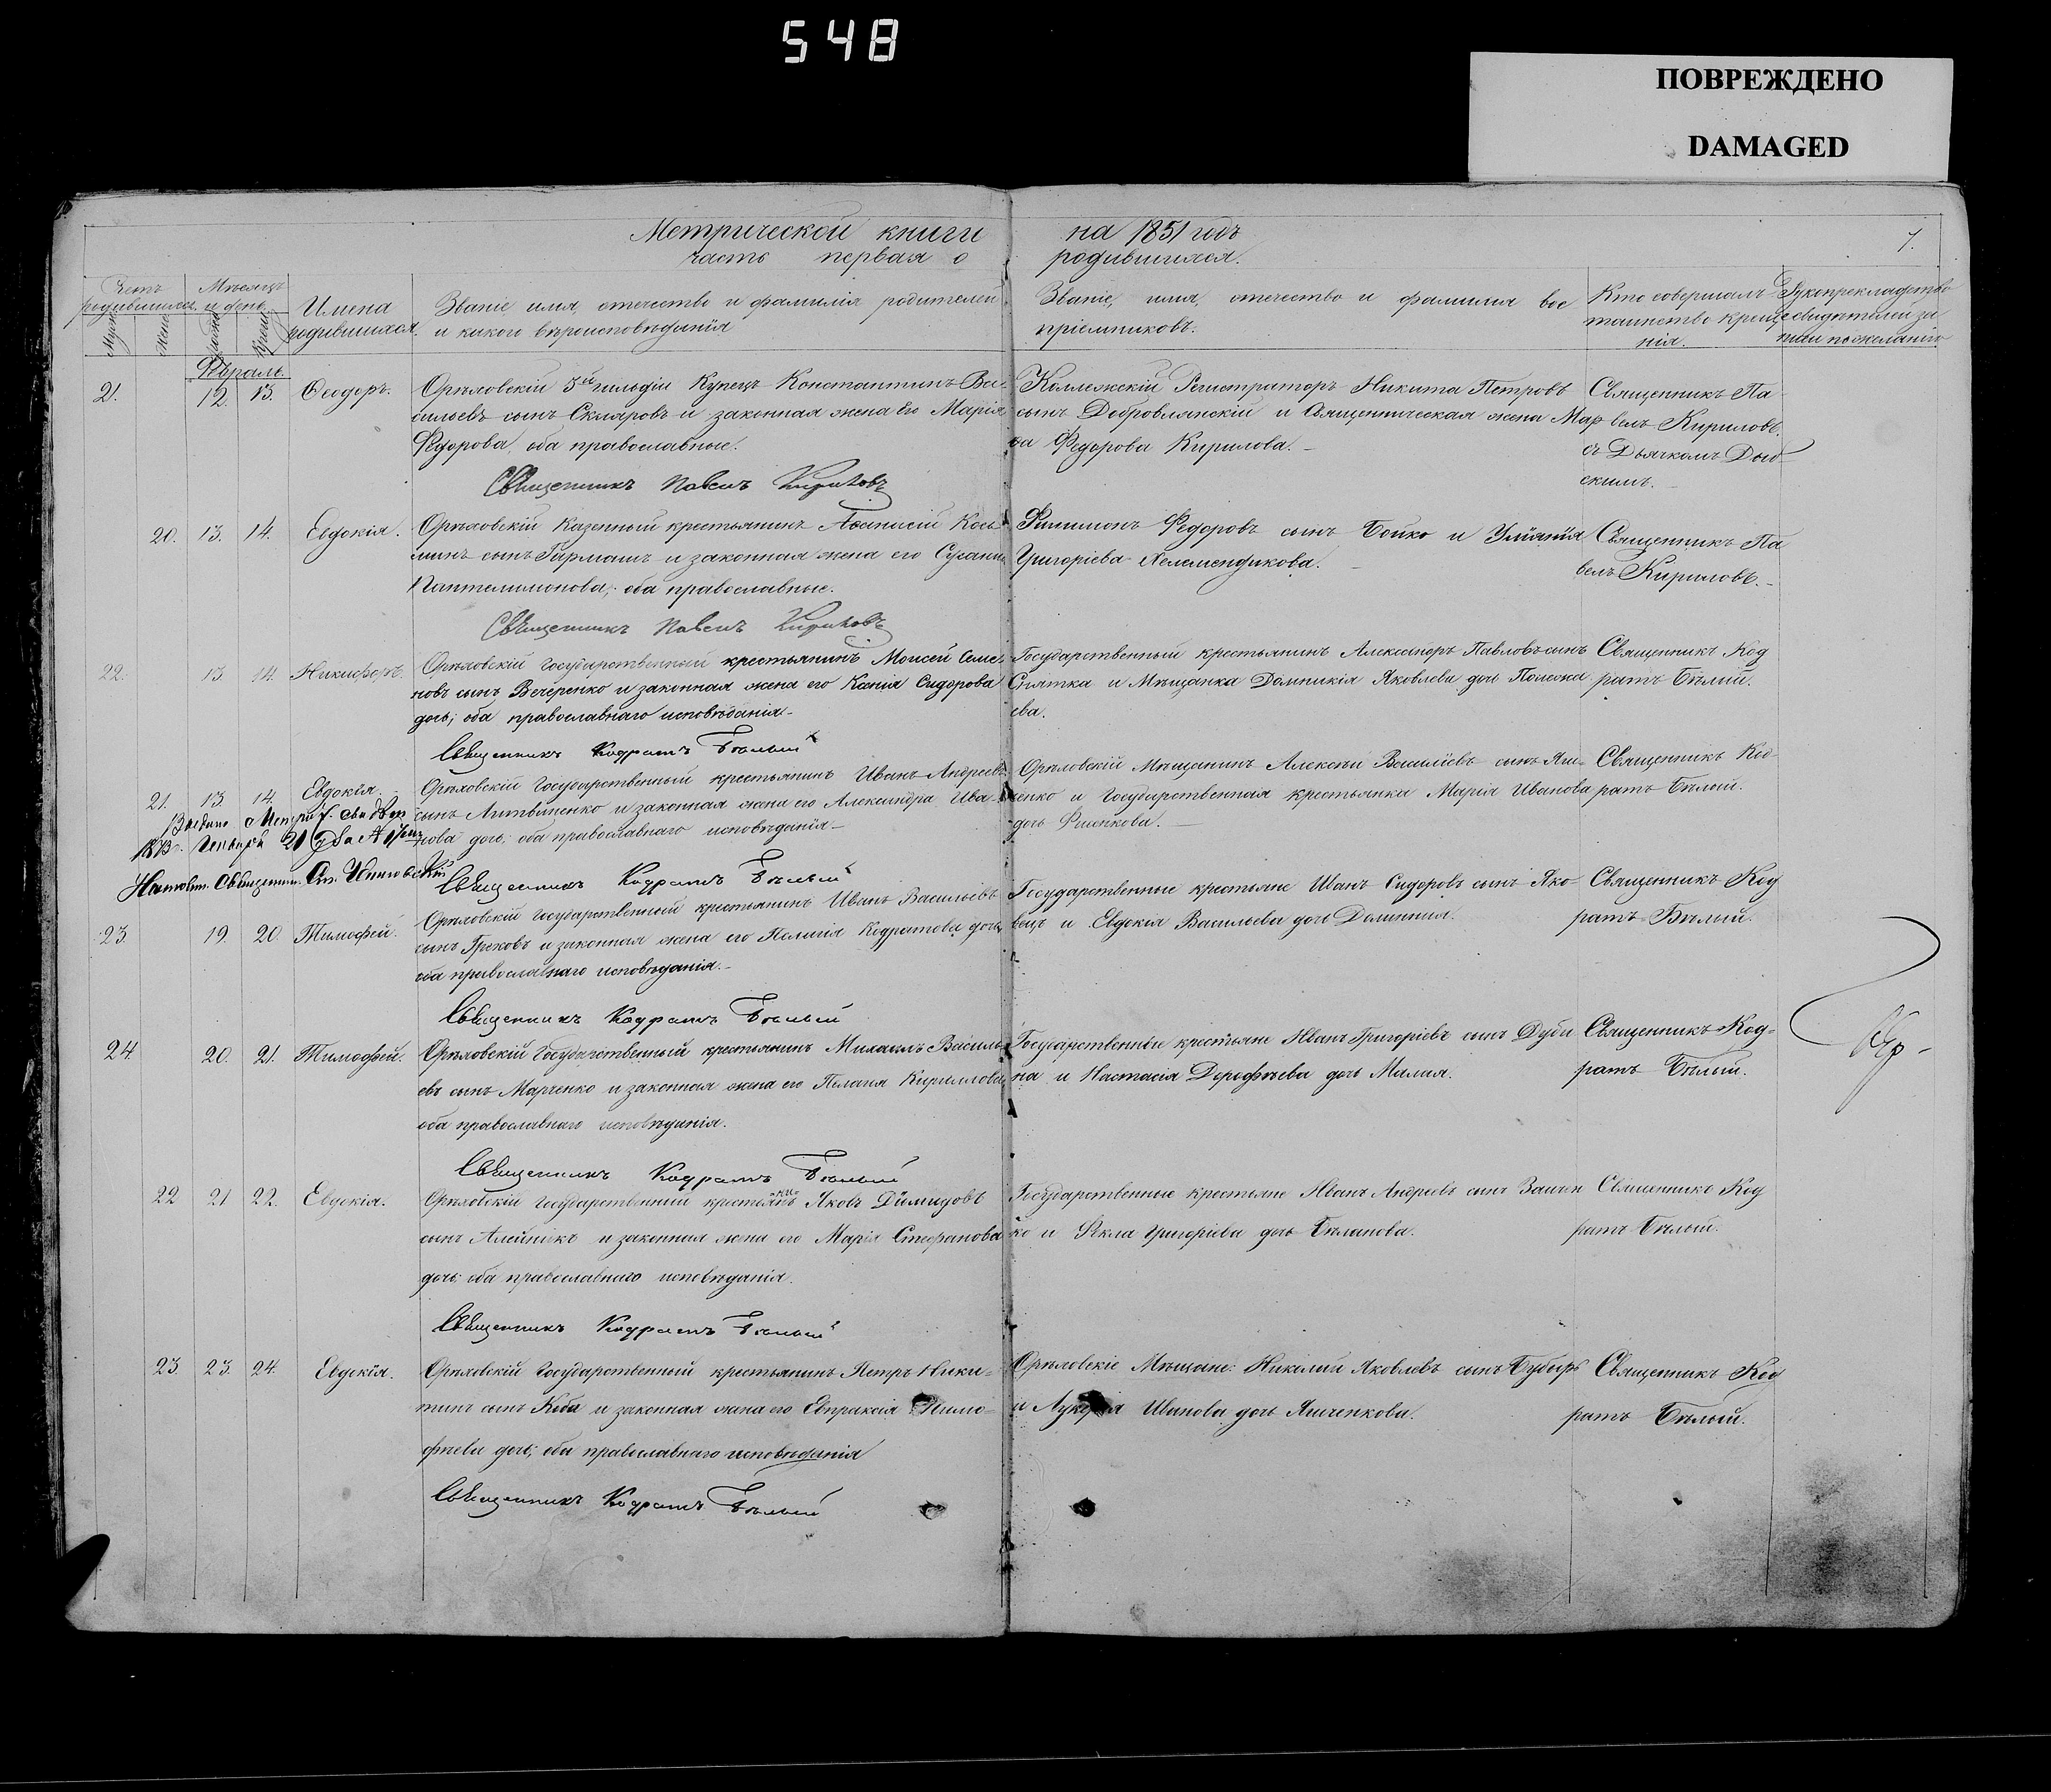 548
ПОВРЕЖДЕНО
DAMAGED
Метрической книги на 1851 годъ
часть первая о родившихся.
7.
Счетъ родившихся.
Мѣсяцъ и день.
Имена родившихся.
Званіе имя, отечество и фамилія родителей
и какого вѣроисповѣданія
Званіе, имя, отечество и фамилія вос
пріемниковъ.
Кто совершалъ
таинство креще
нія.
Рукоприкладство
свидѣтелей за
писи по желанію
Февраль.
21. 12. 13. Ѳеодоръ.
Орѣховскій 3ей гильдіи Купецъ Константинъ Ва-
сильевъ сынъ Скляровъ и законная жена его Марія
Федорова, оба православные.
Священникъ Павелъ Кириловъ
Коллежскій Регистраторъ Никита Петровъ
сынъ Добровлянскій и Священническая жена Мар
ѳа Федорова Кирилова.
Священникъ Па
велъ Кириловъ.
съ Дьячкомъ
скимъ.
20. 13. 14. Евдокія.
Орѣховскій Казенный крестьянинъ Афанасій Кось
минъ сынъ Гирманъ и законная жена его Сусанна
Пантелимонова, оба православные.
Священникъ Павелъ Кириловъ
Филимонъ Федоровъ сынъ Бойко и Уліянія
Григоріева Келемендикова.
Священникъ Па
велъ Кириловъ.
22. 13. 14. Никифоръ.
Орѣховскій государственный крестьянинъ Моисей Семе-
новъ сынъ Вечеренко и законная жена его Ксенія Сидорова
дочь; оба православнаго исповѣданія
Священникъ Кодратъ Бѣлый
Государственный крестьянинъ Александръ Павловъ сынъ
Снятка и Мѣщанка Домникія Яковлева дочь Полежа
ева.
Священникъ Код
ратъ Бѣлый.
21. 13. 14. Евдокія.
Орѣховскій Государственный крестьянинъ Иванъ Андреевъ
сынъ Литвиненко и законная жена его Александра Ива-
нова дочь; оба православнаго исповѣданія
Священникъ Кодратъ Бѣлый
Орѣховскій Мѣщанинъ Алексѣй Василіевъ сынъ Яш-
ченко и Государственная крестьянка Марія Иванова
дочь
Священникъ Код-
ратъ Бѣлый.
23. 19. 20. Тимофей.
Орѣховскій государственный крестьянинъ Иванъ Васильевъ
сынъ Грековъ и законная жена его Пелагія Кодратова дочь,
оба православнаго исповѣданія.
Священникъ Кодратъ Бѣлый
Государственные крестьяне Иванъ Сидоровъ сынъ Яко-
вецъ и Евдокія Васильева дочь
Священникъ Код
ратъ Бѣлый.
24 20. 21. Тимофей.
Орѣховскій Государственный крестьянинъ Михаилъ Василь
евъ сынъ Марченко и законная жена его Пелагія Кириллова
оба православнаго исповѣданія.
Священникъ Кодратъ Бѣлый
Государственные крестьяне Иванъ Григоріевъ сынъ Дуби
на и Настасія Дорофѣева дочь Малая.
Священникъ Код-
ратъ Бѣлый.
22 21 22. Евдокія.
Орѣховскій Государственный крестьянинъ Яковъ Діомидовъ
сынъ Алейникъ и законная жена его Марія Стефанова
дочь; оба православнаго исповѣданія.
Священникъ Кодратъ Бѣлый
Государственные крестьяне Иванъ Андреевъ сынъ Заичен
ко и Ѳекла Григоріева дочь Бѣланова.
Священникъ Код
ратъ Бѣлый.
23. 23. 24. Евдокія.
Орѣховскій Государственный крестьянинъ Петръ Ники-
тинъ сынъ Коба и законная жена его Евпраксія Тимо-
фѣева дочь; оба православнаго исповѣданія
Священникъ Кодратъ Бѣлый
Орѣховскіе Мѣщане: Николай Яковлевъ сынъ Бубырь
и Лукерія Иванова дочь Яшченкова.
Священникъ Код
ратъ Бѣлый.